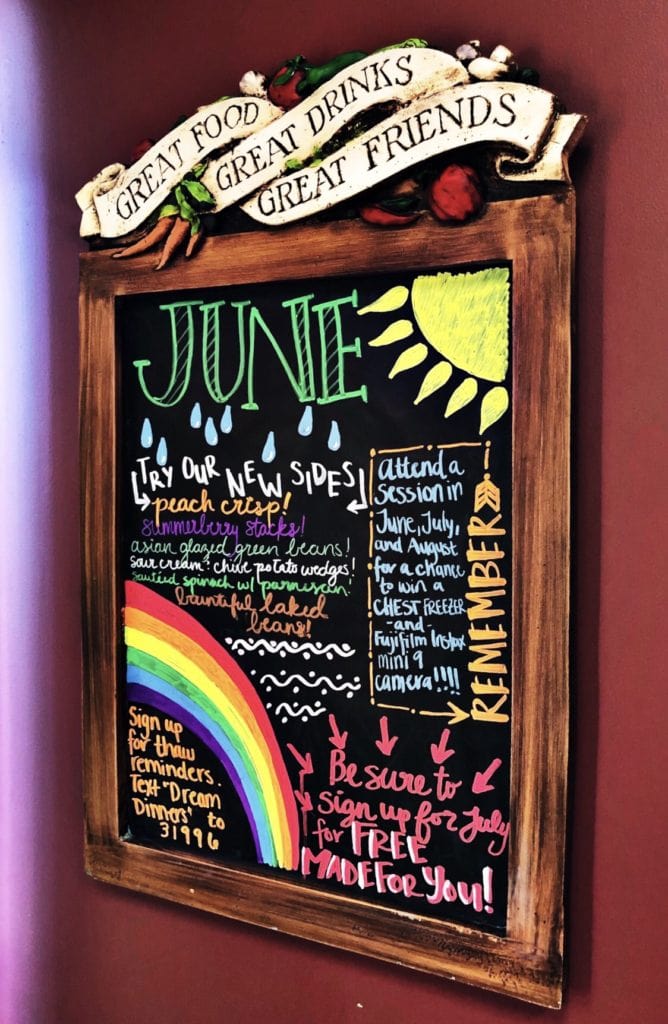 GREAT FOOD
GREAT DRINKS
GREAT FRIENDS
JUNE
TRY OUR NEW SIDES
peach crisp!
summerberry stacks!
asian glazed green beans!
sour cream + chive potato wedges!
sautéed spinach w/ parmesan!
bountiful baked
beans!
Attend a
session in
June, July,
and August
for a chance
to win a
CHEST FREEZER
-and-
Fujifilm Instax
mini 9
camera!!!!
REMEMBER
Sign up
for thaw
reminders.
Text "Dream
Dinners" to
31996
Be sure to
sign up for July
for FREE
MADE FOR YOU!